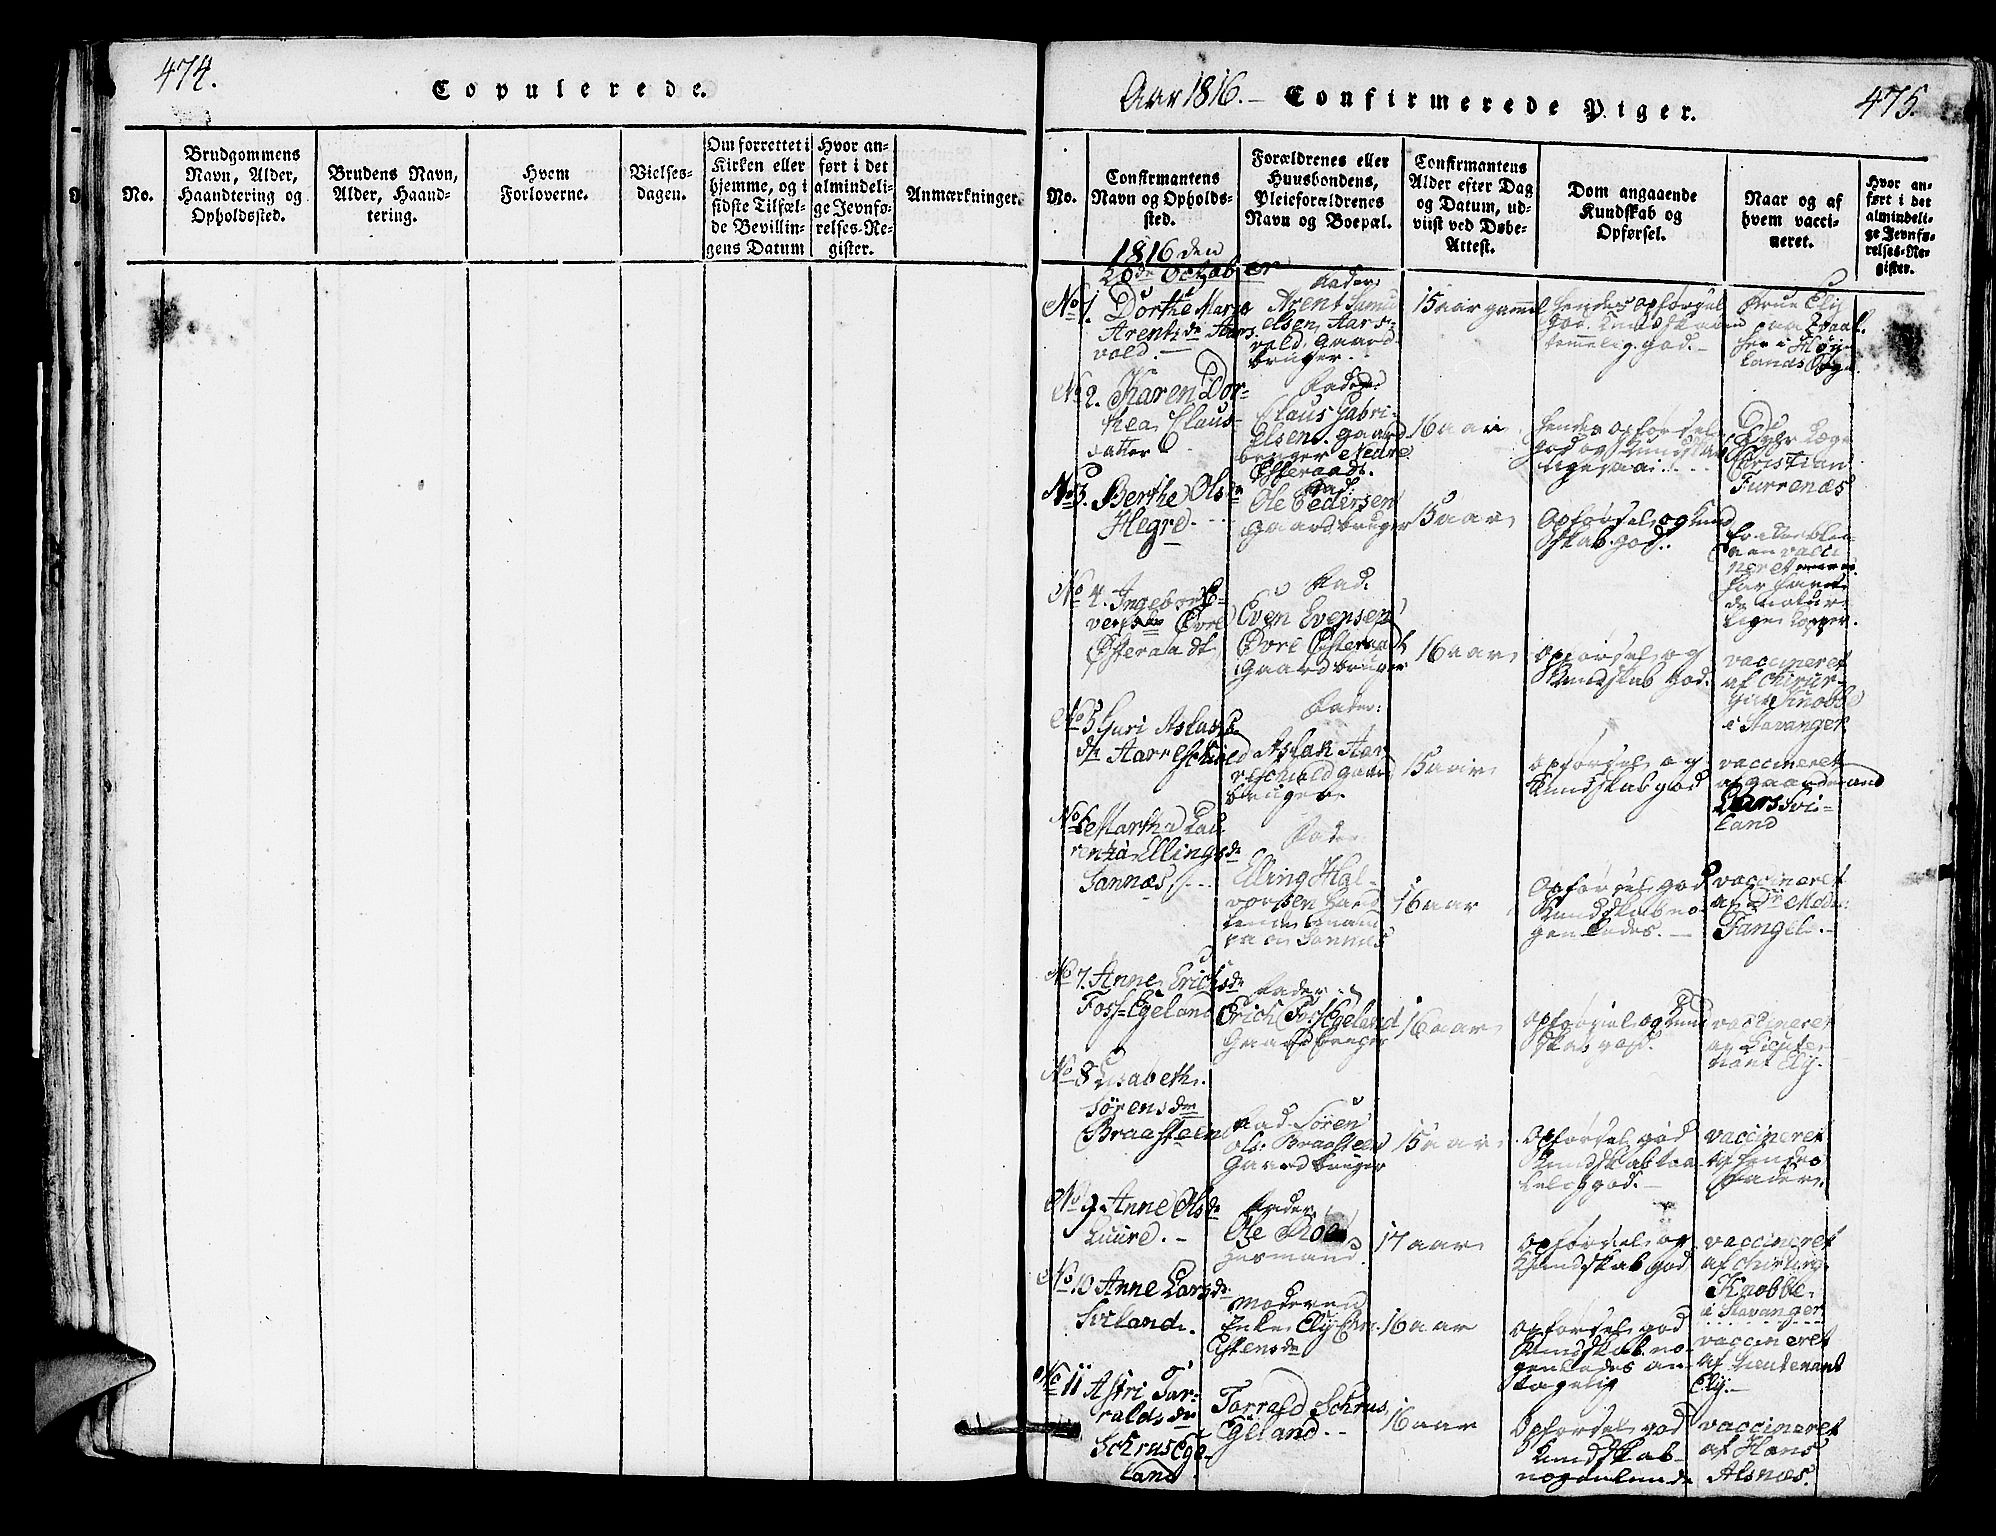 474.
Copulerede.
No.
Brudgommens
Navn, Alder,
Haandtering og
Opholdssted.
Brudens Navn,
Alder, Haand-
tering.
Hvem
Forloverne.
Vielses-
dagen.
Om forrettet i
Kirken eller
hjemme, og i
sidste Tilfæl-
de Bevillin-
gens Datum
Hvor an-
ført i det
almindeli-
ge Jevnfø-
relses-Re-
gister.
Anmærkninger.
Aar 1816. Confirmerede Piger.
475.
No.
Confirmantens
Navn og Opholds-
sted.
Forældrenes eller
Huusbondens,
Pleieforældrenes
Navn og Boepæl.
Confirmantens
Alder efter Dag
og Datum, ud-
viist ved Døbe-
Attest.
Dom angaaende
Kundskab og
Opførsel.
Naar og af
hvem vacci-
neret.
Hvor an-
ført i det
almindeli-
ge Jevnfø-
relses-Re-
gister.
1816 den
October
No 1. Dorthe Maria
Arentsdr Aars
vold.
Fader
Arent Samu
elsen, Aars-
vold, Gaard
bruger.
15 aar gammel
hendes opførsel
god. Kundskaben
temmelig god.
Frue Ely
paa
i Høy-
lands
No 2. Karen Dor-
thea Claus-
datter
Fader
Claus Gabri-
elsen. gaard
bruger Nedre
Østeraadt.
16 aar
hendes opførsel
god og Kundskab
ligesaa.
Christian
Furrenæs
No 3. Berthe Olsdr
Hegre.
Fad:
Ole Pedersen
Gaardbruger
15 aar
Opførsel og Kund
skab god.
vacci
neret
har havt
de natur
lige Kopper.
No 4. Ingebor E-
versdr Øvre
Østeraadt
Fad.
Even Evensen
Øvre Østeraadt
Gaardbruger
16 aar
opførsel og
Kundskab God.
vaccineret
af Chirur-
Knobbe
i Stavanger
No 5 Guri Aslags
dr Aarreschield
Fader:
Aslak Aar
reschield gaard
bruger.
15 aar
opførsel og
Kundskab god
vaccineret
af gaardmand
Lars Svi-
land
No 6 Martha Lau
rentza Ellingsdr
Sannæs
Fader
Elling Hal-
vorssen
Sannæs
16 aar
Opførsel god
Kundskab no-
genledes.
vaccineret
af Dr
Fangel.
No 7. Anne Erichsdr
Foss-Egeland
Fader
Erich FossEgeland
Gaardbruger
16 aar
opførsel og Kund
skab god.
vaccineret
af Lieute-
nant Ely.
No 8 Elisabeth
Sörensdr
Braasteen
Fad Sören
Ols: Braasteen
Gaardbruger
15 aar
Opførsel god
Kundskab taa
lelig god.
vaccineret
af hendes
Fader.
No 9. Anne Olsdr
Luure.
Fader
Ole
husmand.
17 aar
opførsel og
Kundskab god
vaccineret
af chirurg.
Knobbe
i Stavanger
No 10 Anne Larsdr
Sviland.
Moderen
Enke Ely Chri
Eistensdr
16 aar
opførsel god
Kundskab no-
genledes an-
tagelig
vaccineret
af Lieutenant
Ely.
No 11 Astri Tar-
raldsdr
SchrusEge-
land
Torrald Schrus
Egeland.
16 aar
Opførsel god
Kundskab
nogenlunde
vaccineret
af Hans
Alsnæs.